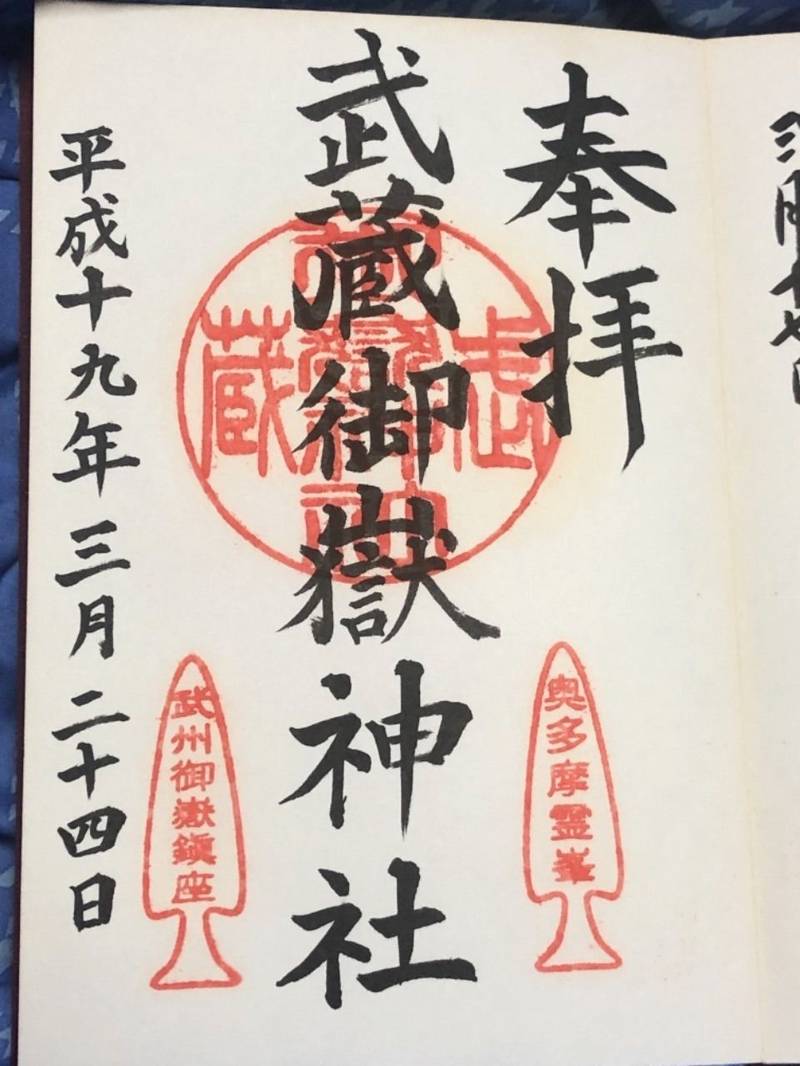 奉拝
武蔵御嶽神社
平成十九年三月二十四日
奥多摩霊峯
武州御嶽鎮座